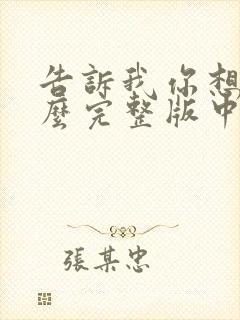 告訴我你想
麼完整版中
張某忠